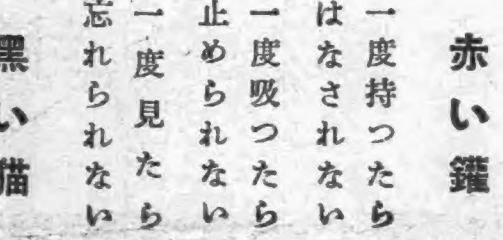 赤い鑵
一度持つたら
はなされない
一度吸つたら
止められない
一度見たら
忘れられない
黑い猫